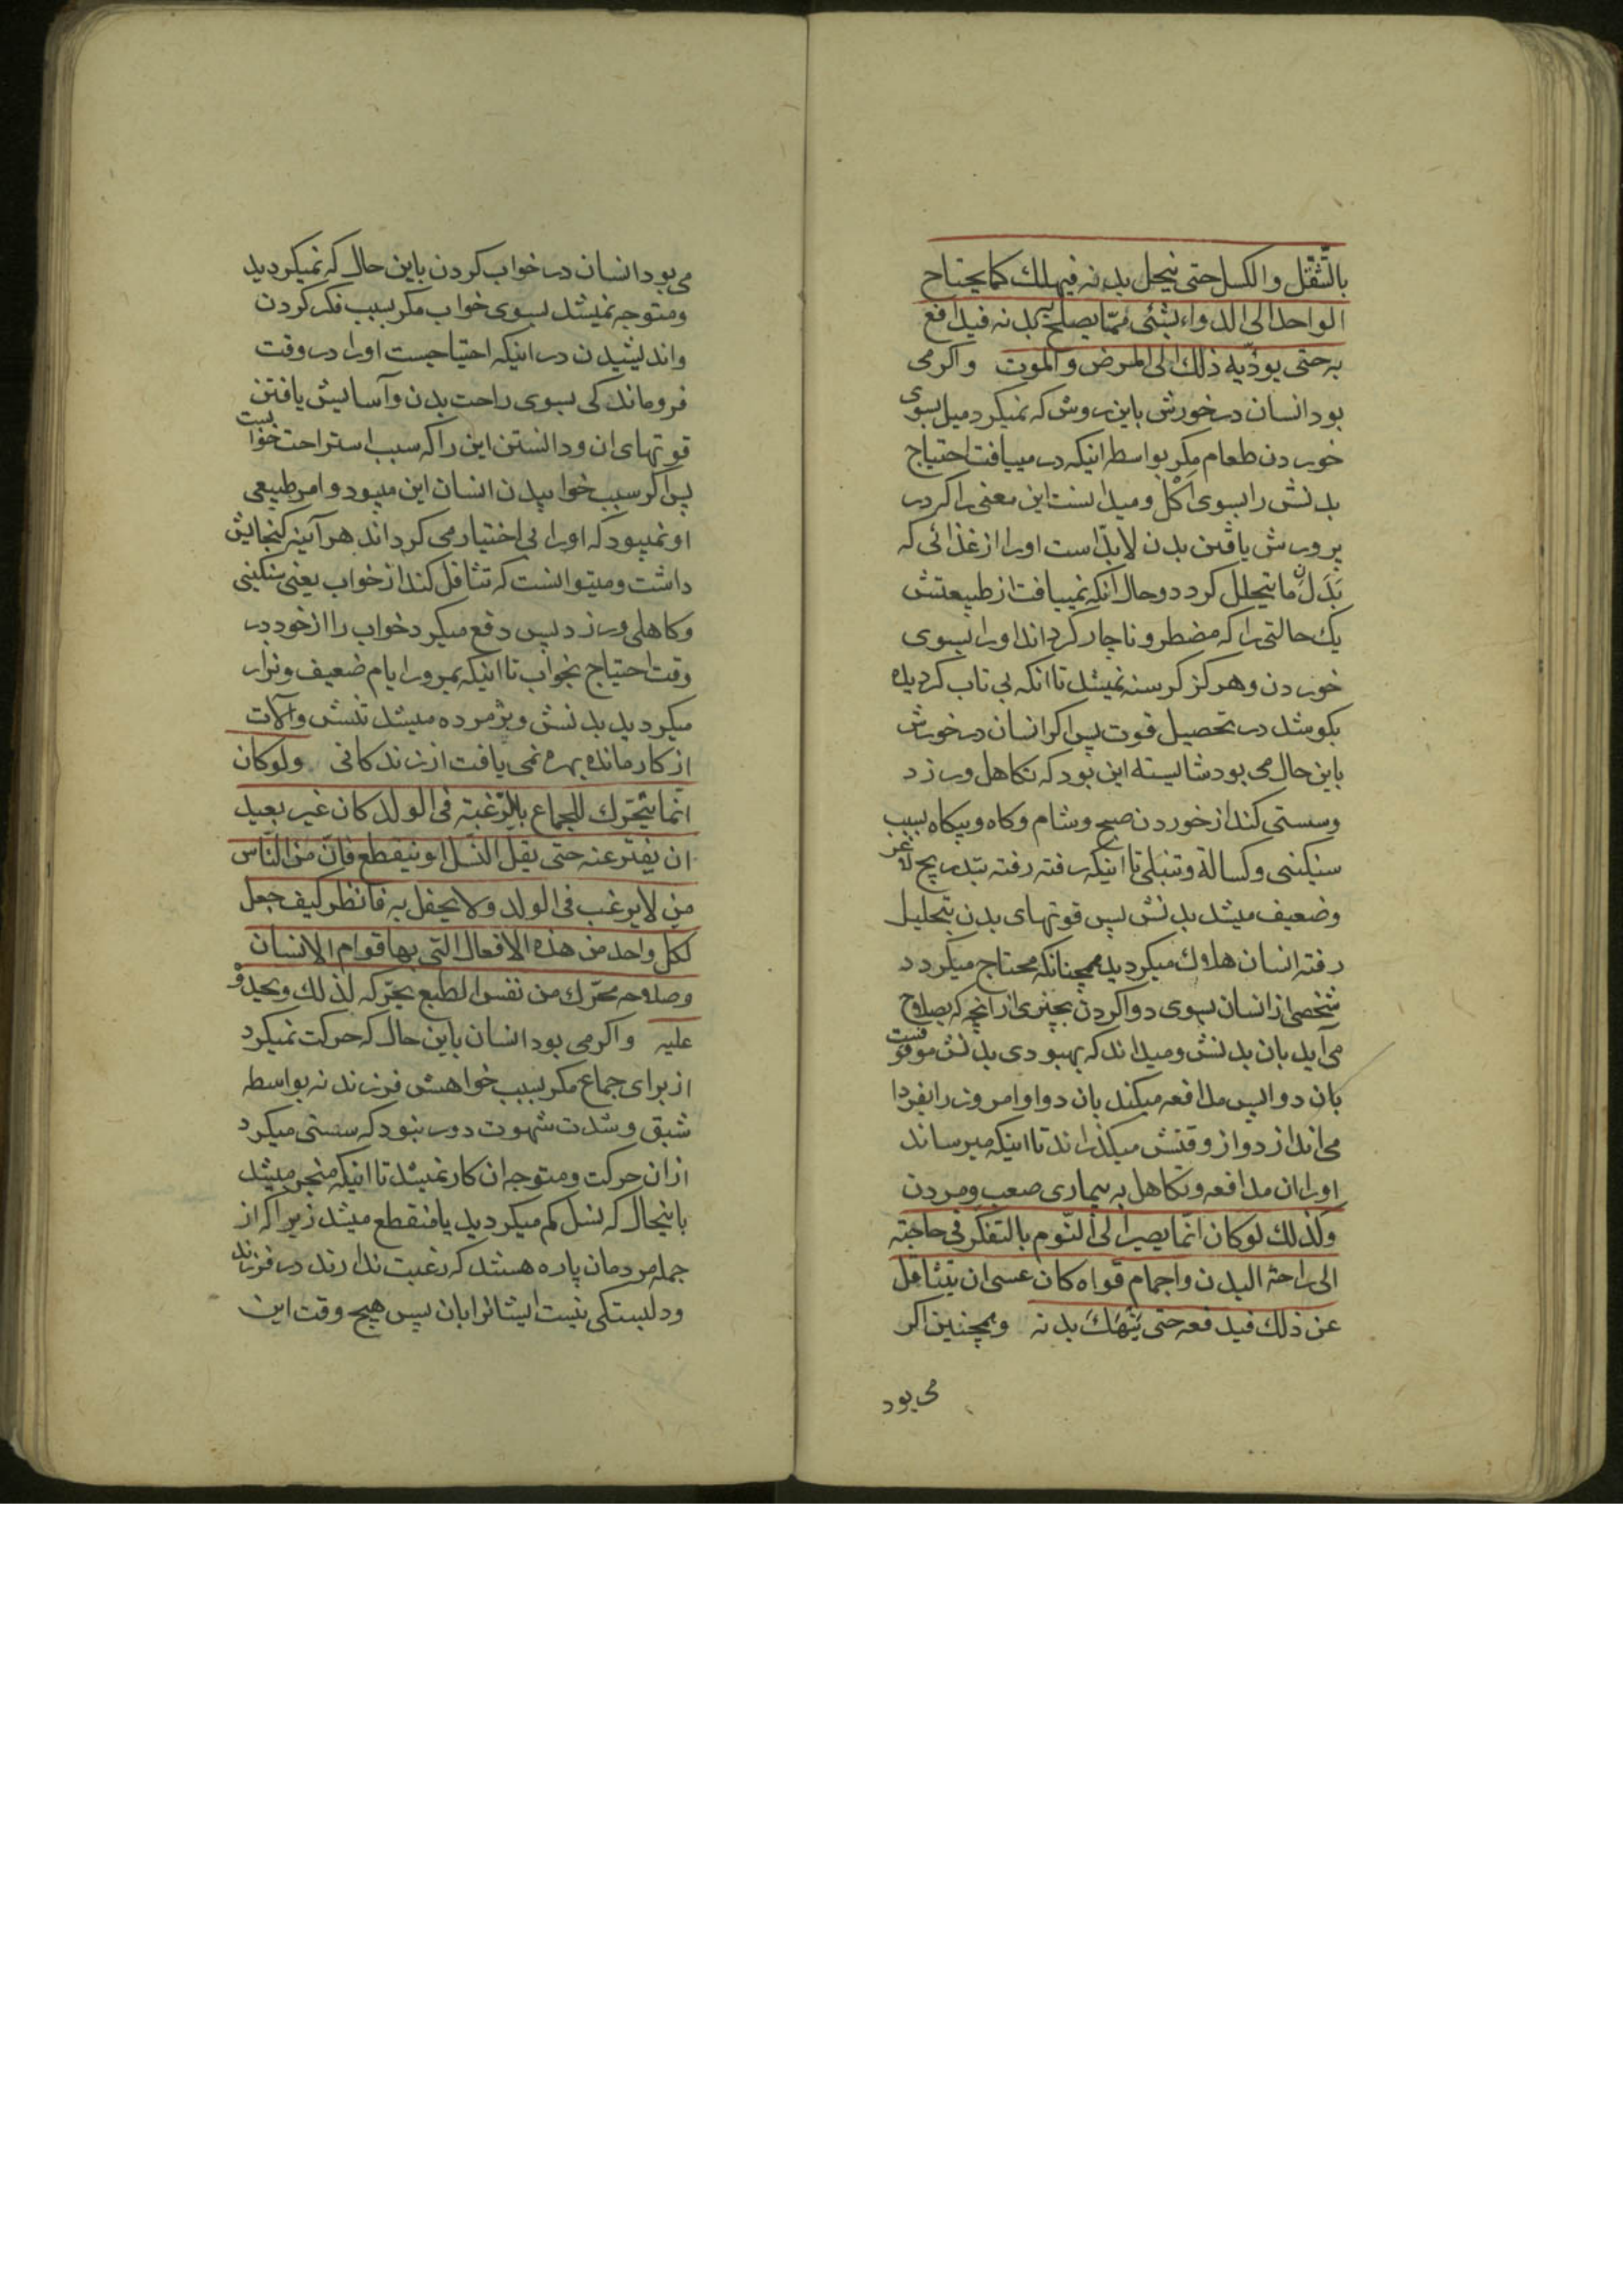 بالتّثقّل والكسل حتى ينحل بدنه فيهلك كما يحتاج
الواحد الى الدواء بشئ ممّا يصلح به بدنه فيدافع
به حتى يودّيه ذلك الى المرض والموت واكر مى
بود انسان در خورش باين روش كه نميكرد ميل بسوى
خوردن طعام مكر بواسطه اينكه در مييافت احتياج
بدنش را بسوى اكل وميدانست اين معنى را كه در
پرورش يافتن بدن لابدّ است اورا از غذائى كه
بَدَل ما يتحلل كردد وحال آنكه نمييافت از طبيعتش
يك حالتى را كه مضطر و ناچار كرداند اورا بسوى
خوردن وهركز كرسنه نميشد تا انكه بى تاب كرديده
بكوشد در تحصيل قوت پس اكر انسان در خورش
باين حال مى بود شايسته اين بود كه تكاهل ورزد
وسستى كند از خوردن صبح وشام وكاه وبيكاه بسبب
سنكينى وكسالة وتنبلى تا اينكه رفته رفته بتدريج لاغر
وضعيف ميشد بدنش پس قوتهاى بدن بتحليل
رفته انسان هلاك ميكرديد همچنانكه محتاج ميكردد
شخصى از انسان بسوى دوا كردن بچيزى از آنچه كه بصلاح
مى آيد بان بدنش وميداند كه بهبودى بدنش موقوفست
بان دوا پس مدافعه ميكند بان دوا وامروز را بفردا
مى اندازد واز وقتش ميكذراند تا اينكه ميرساند
اورا ان مدافعه وتكاهل به بيمارى صعب ومردن
ولذلك لو كان انّما يصير الى النّوم بالتفكّر فى حاجته
الى راحة البدن واجمام قواه كان عسى ان يتثاقل
عن ذلك فيدفعه حتى يَنهَكَ بدنه وهمچنين اكر
مى بود
مى بود انسان در خواب كردن باين حال كه نميكرديد
ومتوجه نميشد بسوى خواب مكر بسبب فكر كردن
وانديشيدن در اينكه احتياجست اورا در وقت
فروماندكى بسوى راحت بدن وآسايش يافتن
قوتهاى ان ودانستن اين را كه سبب استراحت خوابست
پس اكر سبب خوابيدن انسان اين ميبود وامر طبيعى
او نميبود كه اورا بى اختيار مى كرداند هر آينه كنجايش
داشت وميتوانست كه تثاقل كند از خواب يعنى سنكينى
وكاهلى ورزد پس دفع ميكرد خواب را از خود در
وقت احتياج بخواب تا اينكه بمرور ايام ضعيف ونزار
ميكرديد بدنش وپژمرده ميشد تنش وآلات
از كار مانده بهره نمى يافت از زندكانى ولو كان
انّما يتحرّك للجماع بالرّغبة فى الولد كان غير بعيد
ان يفتر عنه حتى يقل النّسل او ينقطع فانّ من النّاس
من لا يرغب فى الولد ولا يحفل به فانظر كيف جعل
لكل واحد من هذه الافعال التى بها قوام الانسان
وصلاحه محرّك من نفس الطبع يحرّكه لذلك ويحدوه
عليه واكر مى بود انسان باين حال كه حركت نميكرد
از براى جماع مكر بسبب خواهش فرزند نه بواسطه
شبق وشدت شهوت دور نبود كه سستى ميكرد
ازان حركت ومتوجه ان كار نميشد تا اينكه منجر ميشد
باينحال كه نسل كم ميكرديد يا منقطع ميشد زيرا كه از
جمله مردمان پاره هستند كه رغبت ندارند در فرزند
ودلبستكى نيست ايشانرا بان پس هيچ وقت اين